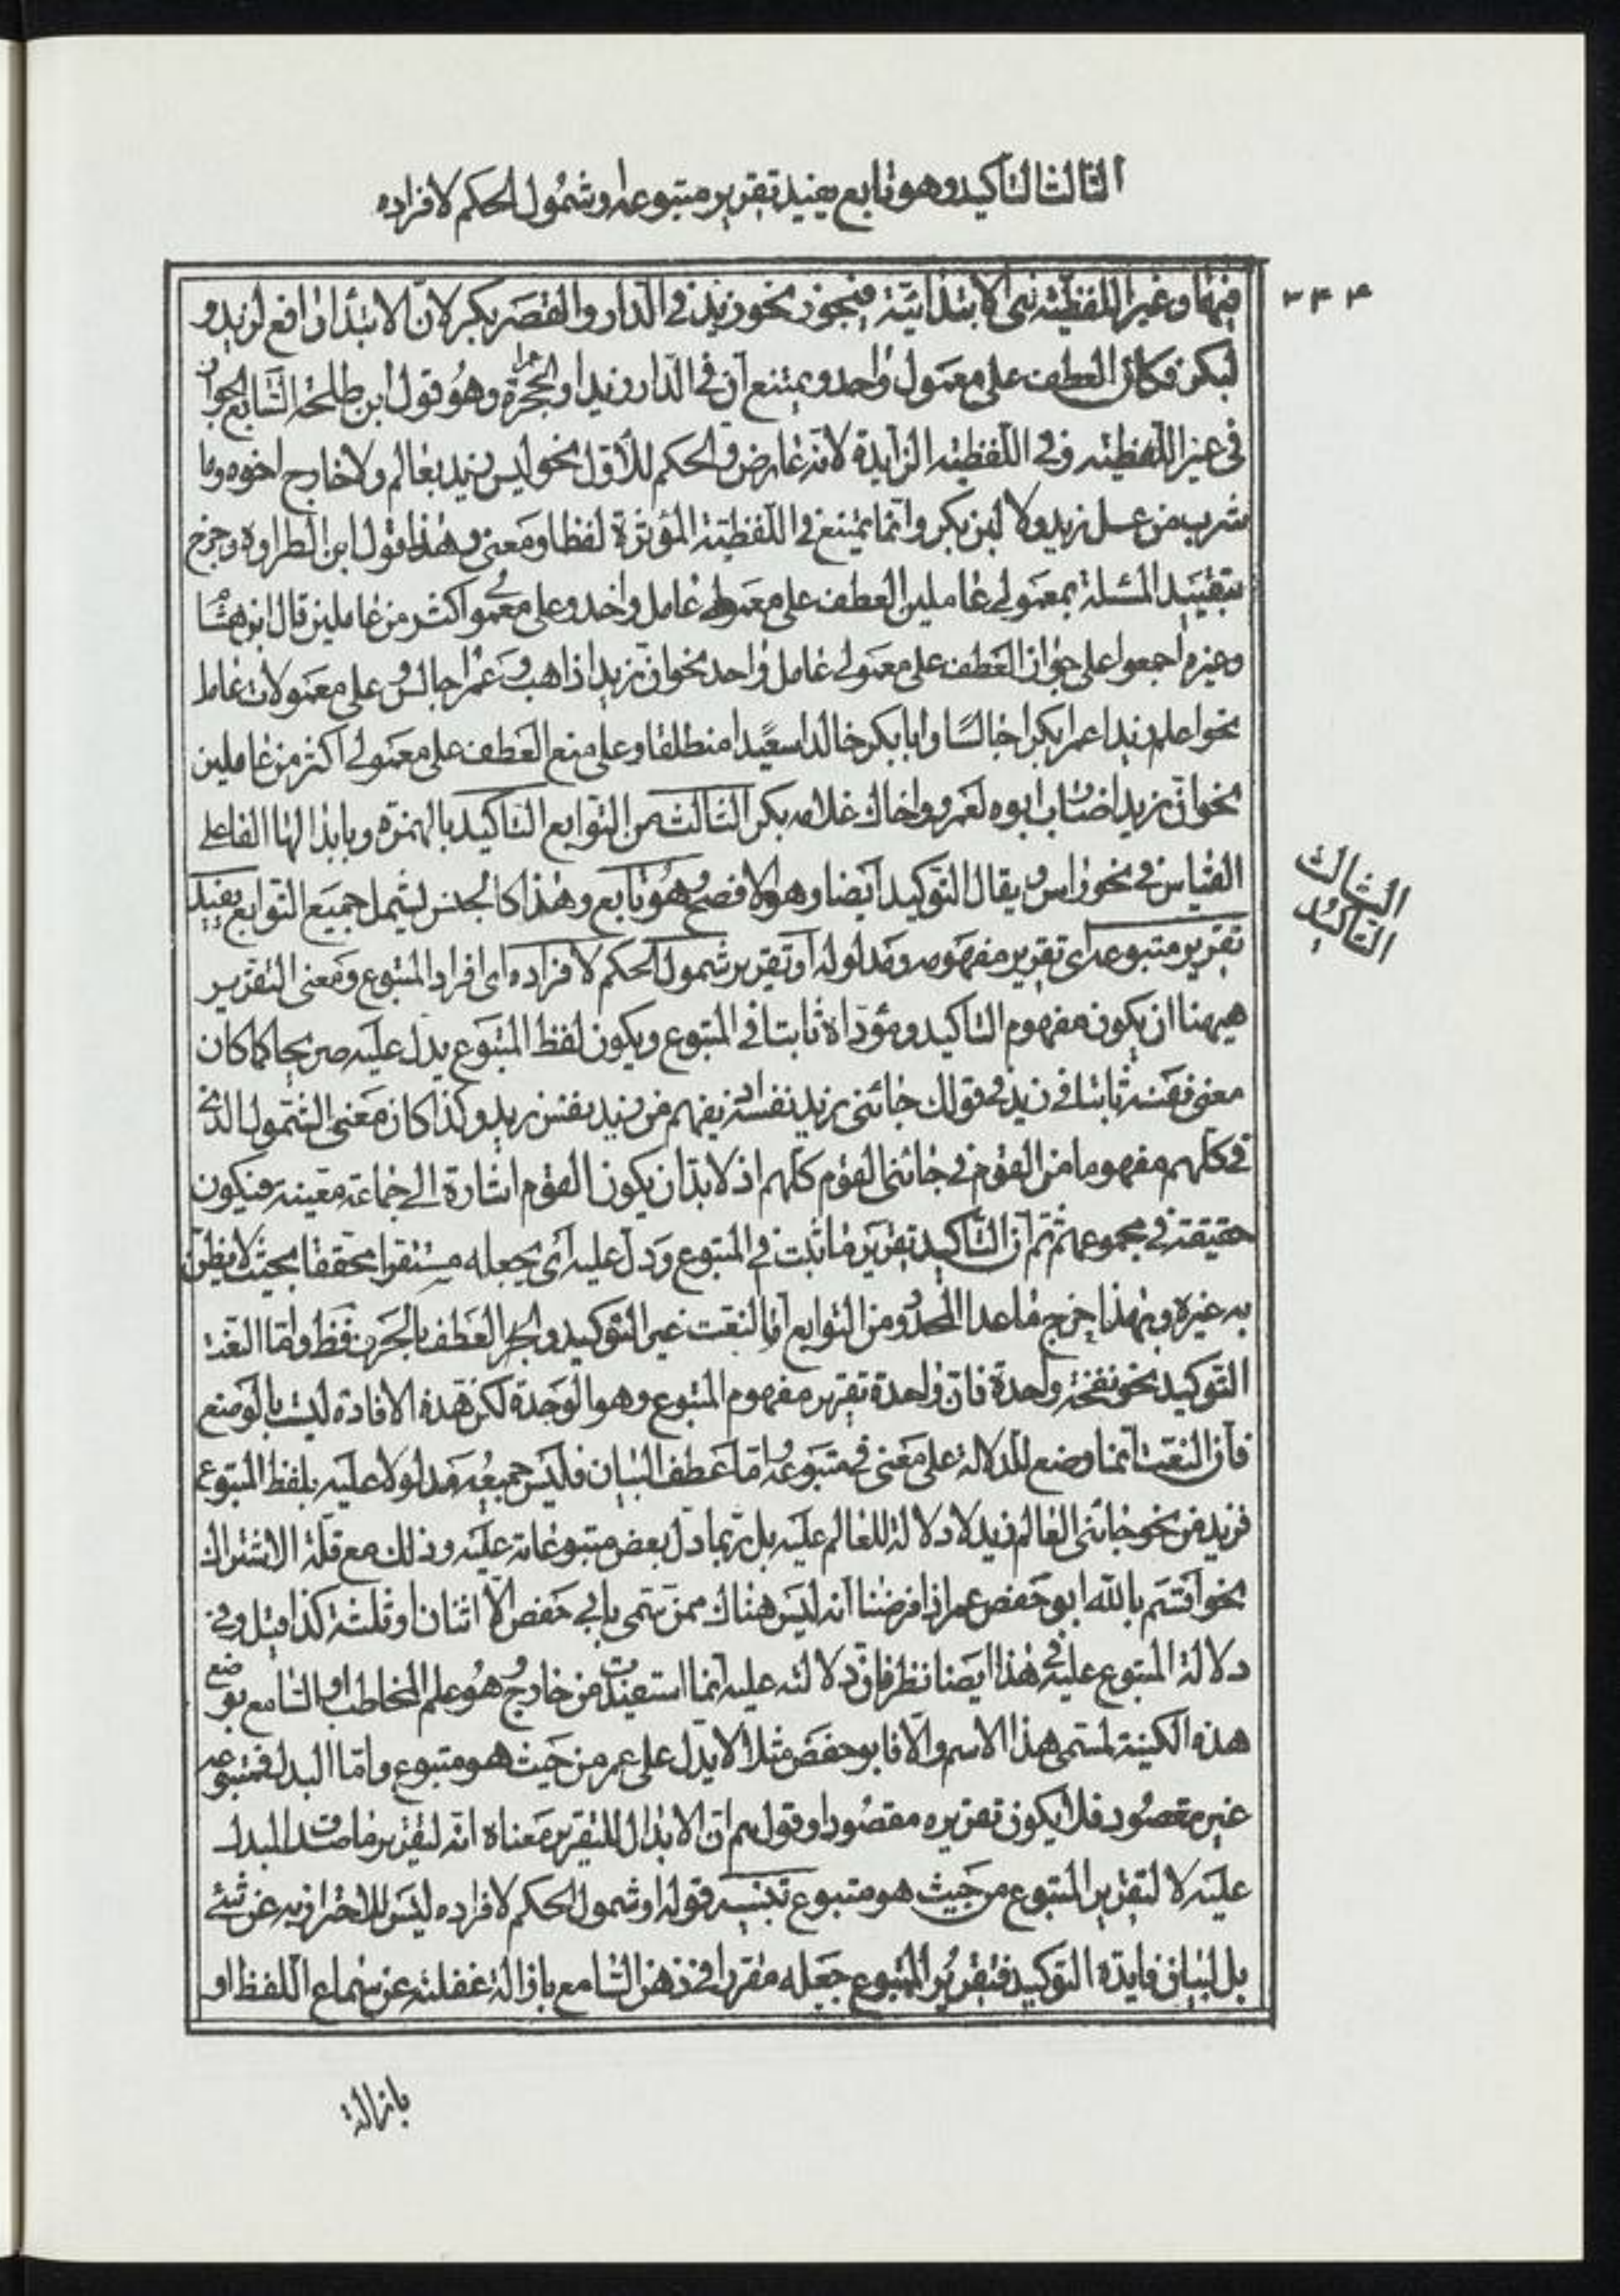 الثالث التأكيد وهو تابع يفيد تقرير متبوعه او شمول الحكم لافراده
۳۴۴
فيهما وغير اللفظية هي الابتدائية فيجوز نحو زيد في الدار والقصر بكر لان الابتداء رافع لزيد و
لبكر فكان العطف على معمول واحد ويمتنع ان في الدار زيدا والحجرة عمرا وهو قول ابن طلحة السابع الجواز
في غير اللفظية وفي اللفظية الزايدة لانه عارض والحكم للاول نحو ليس زيد بعالم ولا خارج اخوه وما
شرب من عسل زيد ولا لبن بكر وانما يمتنع في اللفظية المؤثرة لفظا ومعنى وهذا قول ابن الطراوه وخرج
بتقييد المسئلة بمعمولي عاملين العطف على معمولي عامل واحد وعلى معمولي اكثر من عاملين قال ابن هشام
وغيره اجمعوا على جواز العطف على معمولي عامل واحد نحو ان زيدا ذاهب وعمرا جالس وعلى معمولات عامل
نحو اعلم زيدا عمرا بكرا جالسا وابا بكر خالدا سعيدا منطلقا وعلى منع العطف على معمولي اكثر من عاملين
نحو ان زيدا ضارب ابوه لعمرو واخاك غلامه بكر الثالث من التوابع التاكيد بالهمزة وبابدالها الفا على
القياس في نحو راس ويقال التوكيد ايضا وهو الافصح وهو تابع وهذا كالجنس ليشمل جميع التوابع يفيد
الثالث
التاكيد
تقرير متبوعه اى تقرير مفهومه ومدلوله او تقرير شمول الحكم لافراده اى افراد المتبوع ومعنى التقرير
هيهنا ان يكون مفهوم التاكيد ومؤداه ثابتا في المتبوع ويكون لفظ المتبوع يدل عليه صريحا كما كان
معنى نفسه ثابتا في زيد في قولك جائني زيد نفسه اذ يفهم من زيد نفس زيد وكذا كان معنى الشمول الذي
في كلهم مفهوما من القوم في جائني القوم كلهم اذ لا بد ان يكون القوم اشارة الى جماعة معينة فيكون
حقيقة في مجموعهم ثم ان التاكيد تقرير ما ثبت في المتبوع ودل عليه اى يجعله مستقرا محققا بحيث لا يظن
به غيره وبهذا خرج ما عدا المحدود من التوابع اما النعت غير التوكيد والعطف بالحرف فظ واما النعت
التوكيد نحو نفخة واحدة فان واحدة تقرير مفهوم المتبوع وهو الوحدة لكن هذه الافادة ليست بالوضع
فان النعت انما وضع للدلالة على معنى في متبوعه واما عطف البيان فليس جميعه مدلولا عليه بلفظ المتبوع
فزيد من نحو جائني العالم زيد لا دلالة للعالم عليه بل ربما دل بعض متبوعاته عليه وذلك مع قلة الاشتراك
نحو اقسم بالله ابو حفص عمر اذا فرضنا انه ليس هناك ممن سمي بابي حفص الا اثنان او ثلثة كذا قيل وفي
دلالة المتبوع عليه في هذا ايضا نظر فان دلالته عليه انما استفيدت من خارج وهو علم المخاطب او السامع بوضع
هذه الكنية لمسمى هذا الاسم والا فابو حفص مثلا لا يدل على عمر من حيث هو متبوع واما البدل فمتبوعه
غير مقصود فلا يكون تقريره مقصودا وقولهم ان الابدال للتقرير معناه انه لتقرير ما صدق المبدل
عليه لا لتقرير المتبوع من حيث هو متبوع تنبيه قوله او شمول الحكم لافراده ليس للاحتراز به عن شئ
بل لبيان فايدة التوكيد فتقرير المتبوع جعله مقررا في ذهن السامع بازالة غفلته عن سماع اللفظ او
بازالة